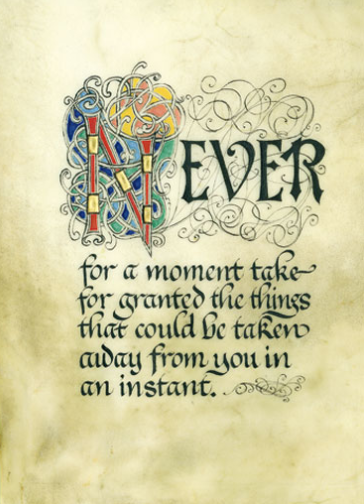 NEVER
for a moment take
for granted the things
that could be taken
away from you in
an instant.